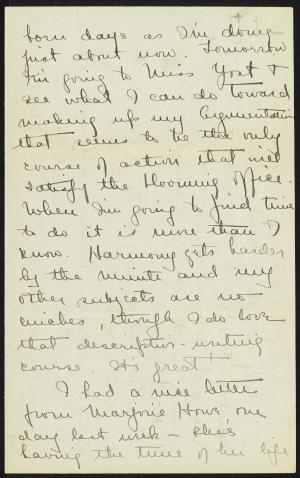 born days as I'm doing
just about now. Tomorrow
I'm going to Miss Yost &
see what I can do toward
making up my Argumentation
that seems to be the only
course of action that will
satisfy the Hooming Office.
When I'm going to find time
to do it is more than I
know. Harmony gets harder
by the minute and my
other subjects are no
cinches, though I do love
that descriptive-writing
course. It's great!
I had a nice letter
from Marjorie Howe one
day last week – she's
having the time of her life